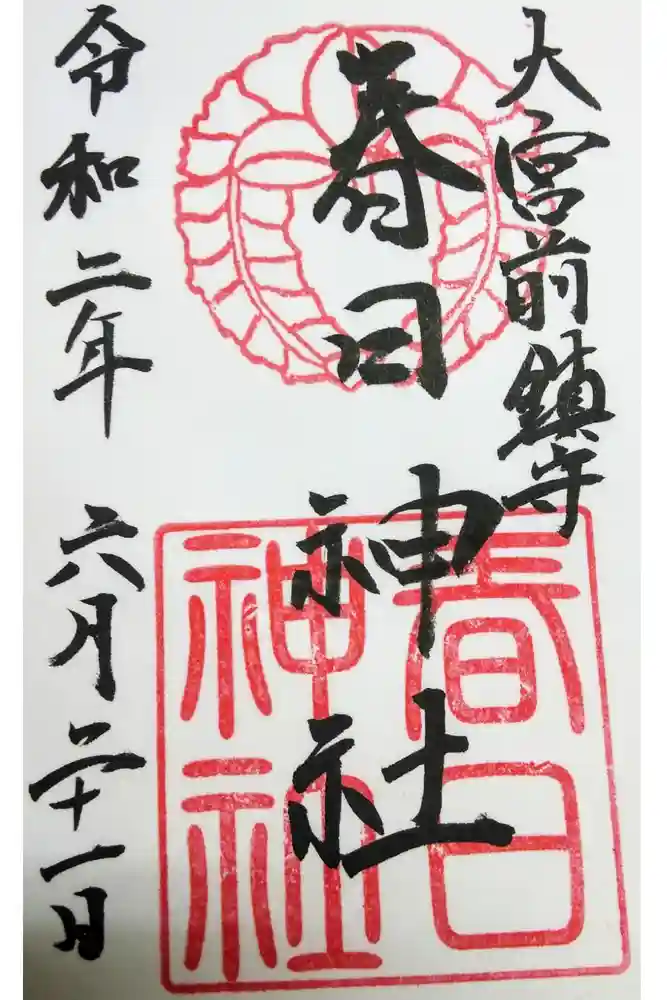 大宮前鎮守
春日神社
春日
神社
令和二年 六月二十一日